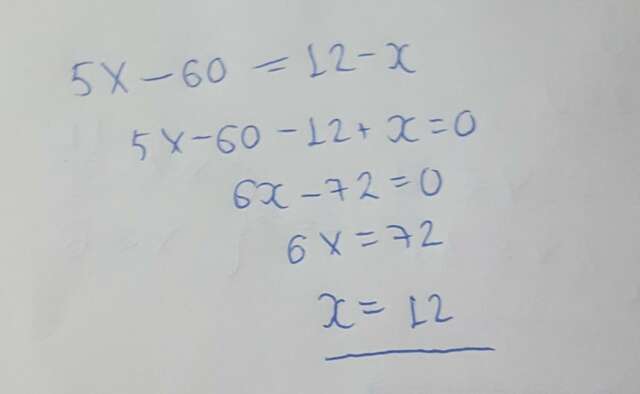 5x - 60 = 12 - x
5x - 60 - 12 + x = 0
6x - 72 = 0
6x = 72
x = 12